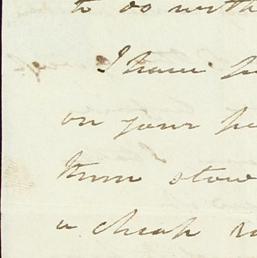 to do with
I have
on your
them stow
a cheap